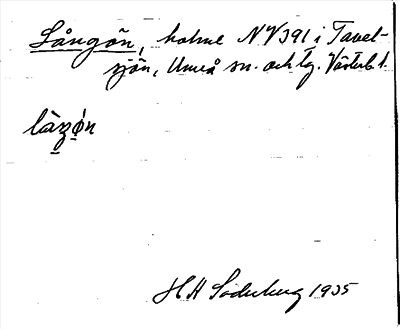 Långön, holme NV391 i Tavel-
sjön, Umeå sn. och tg. Västerb. l.
làzøn
HH Söderberg 1935